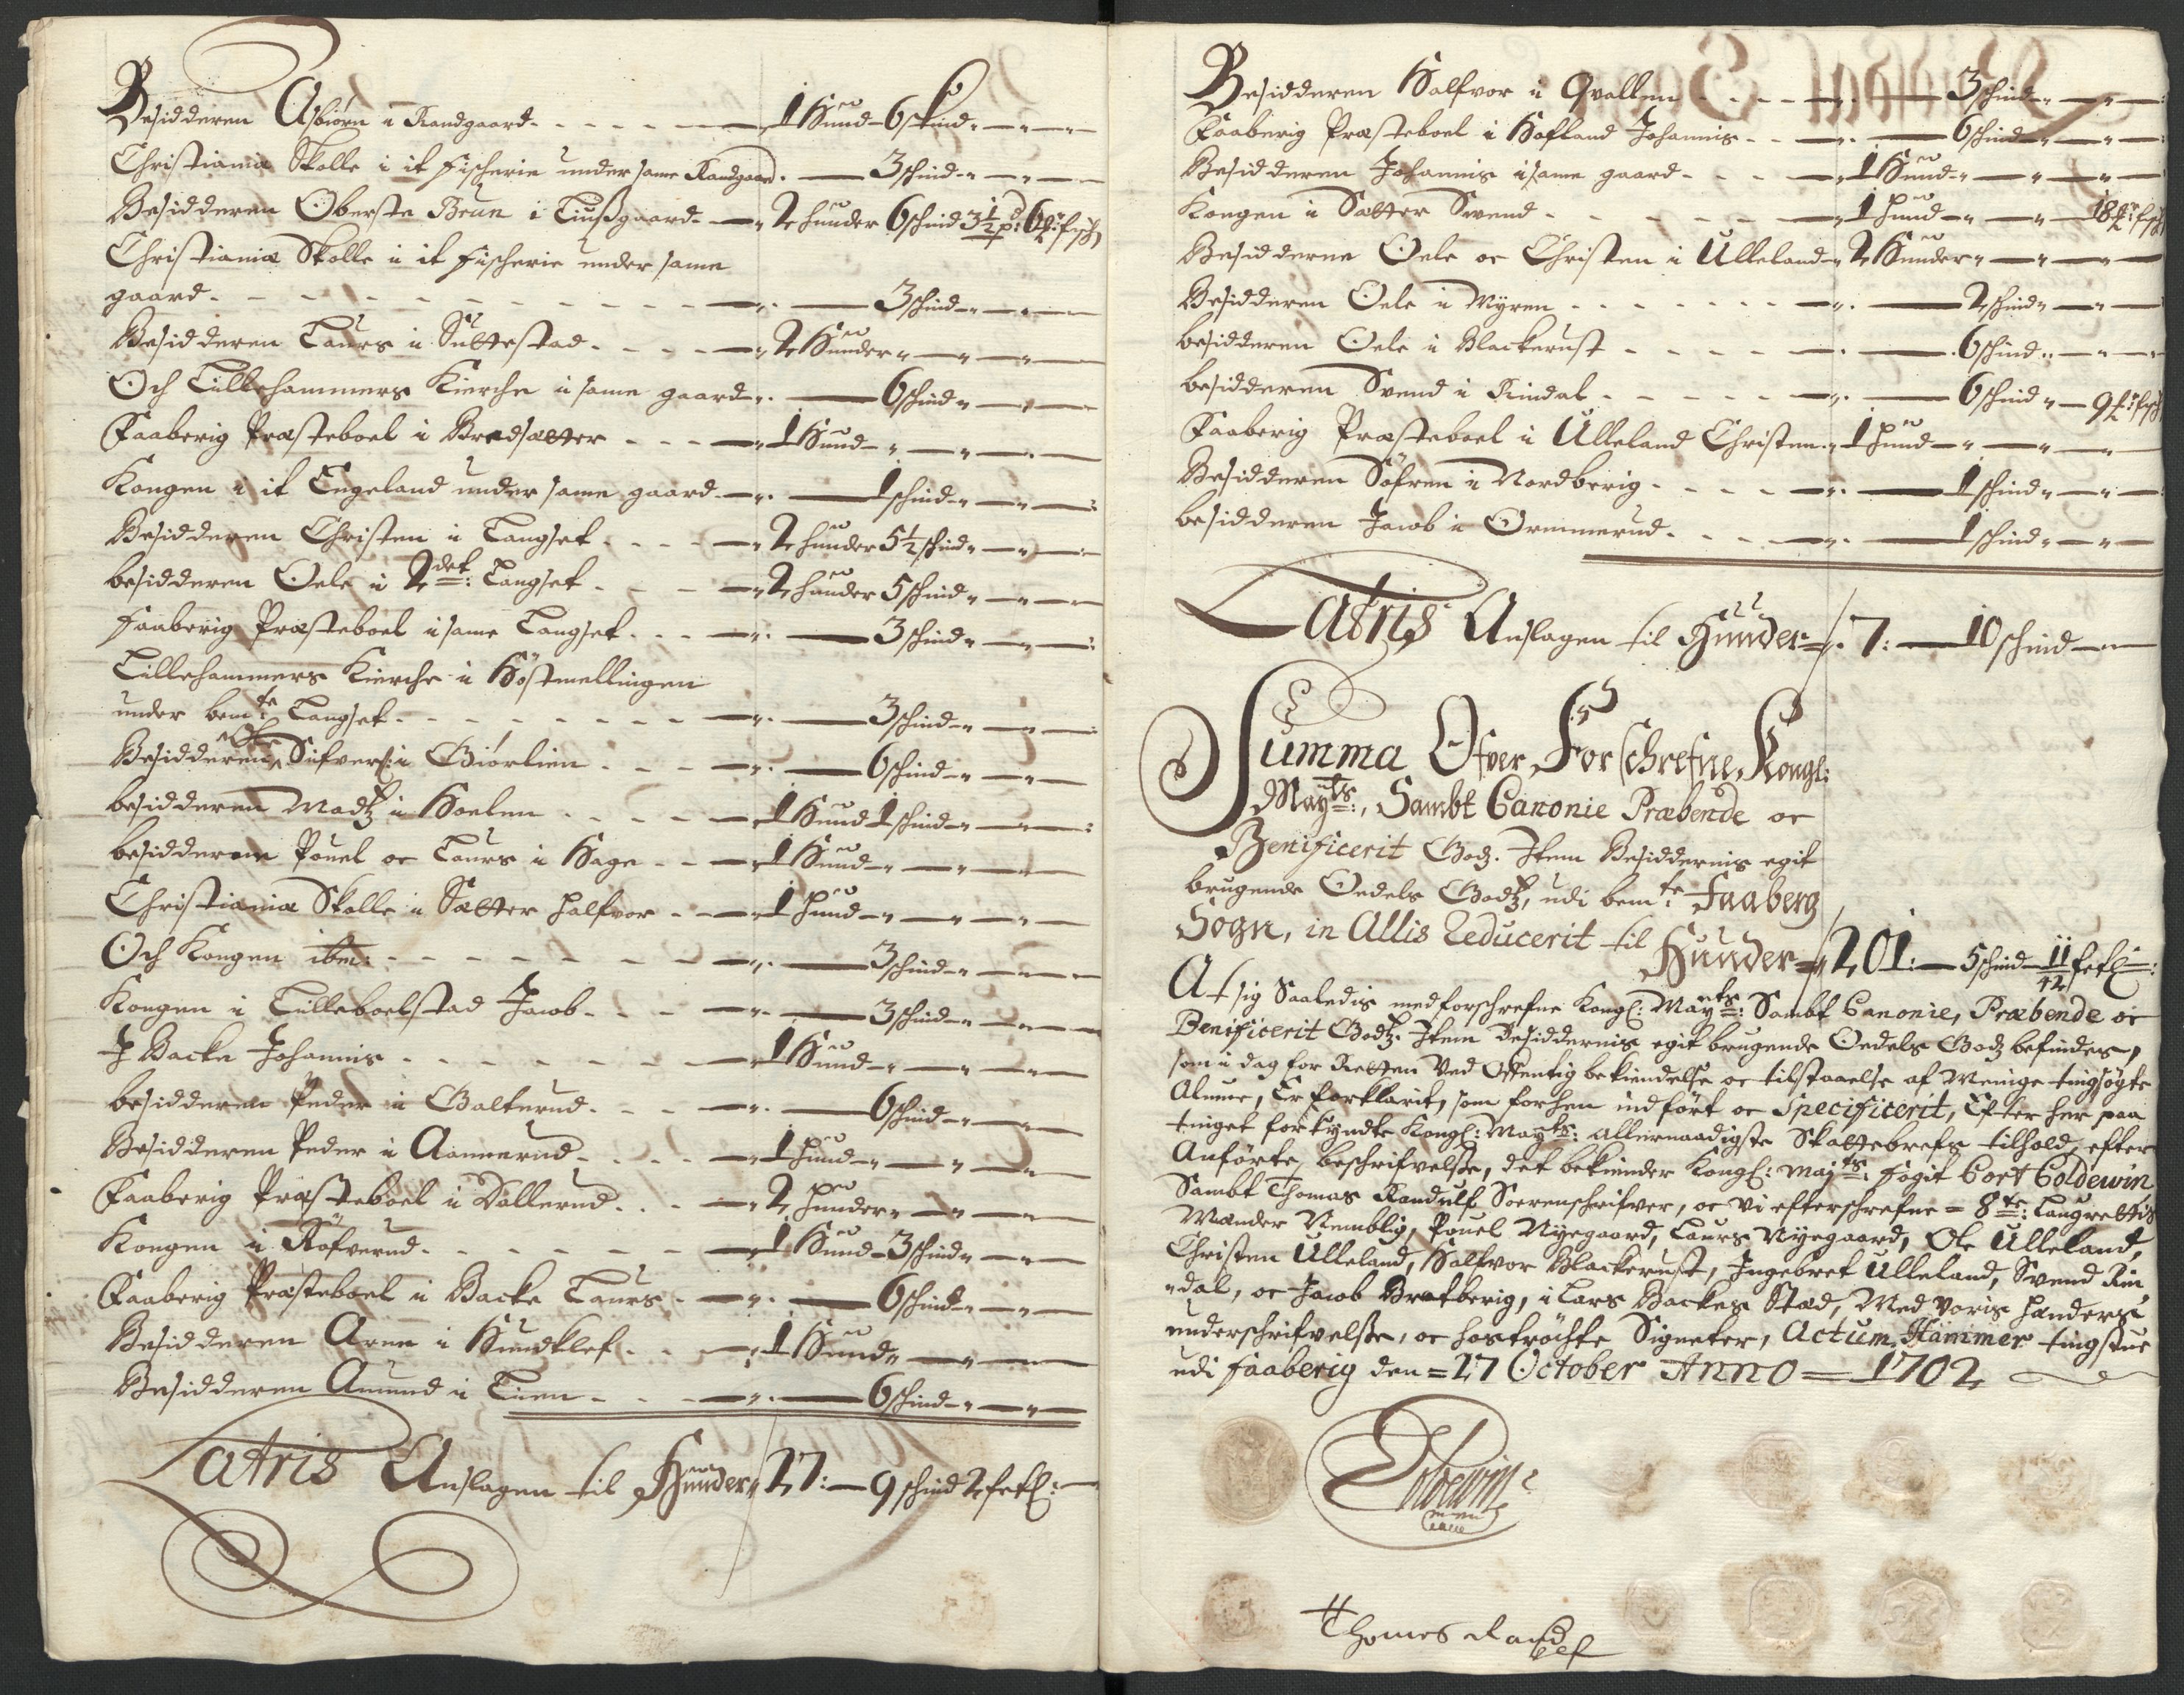 Besidderen Asbiörn i Randgaard - - - - - 1 Hund - 6 skind - " -
Christiania Skolle i it Fischerie under same Randgaard. - 3 schind - " -
Besidderen Oberste Brun i Liußgaard - " 2 hunder 6 schind 3½
Christiania Skolle i it Fischerie under same
gaard - - - - - - - 3 schind - " -
Besidderen Laurs i Suttestad - - - " 2 Hunder " - " -
Och Lillehammers Kierche i same gaard - " - 6 schind " - " -
Faaberig Præsteboel i Bredsætter - - - " 1 Hund - " - " -
Kongen i it Engeland under same gaard - " - 1 schind - " -
Besidderen Christen i Langset - - - " 2 hunder 5½ schind " - " -
besidderen Oele i 2det: Langset - - - " 2 hunder 5 schind " - " -
Faaberig Præsteboel i same Langset - - - " - 3 schind " - " -
Lillehammers Kierche i Höstmellingen
under bemte: Langset - - - - - " - 3 schind - " -
Besidderen Ole Sifvers: i Giörlien - - - " - 6 schind - " -
besidderen Madtz i Hoelen - - - - " 1 Hund 1 schind - " -
besidderne Pouel oc Laurs i Hage - - - " 1 Hund - " - " -
Christiania Skolle i Sætter Halfvor - - " 1 Hund - " - " -
Och Kongen ibm: - - - - - - " - 3 schind - " -
Kongen i Lilleboelstad Jacob - - - " - 3 schind - " -
I Backe Johannis - - - - - - " 1 Hund - " - " -
besidderen Peder i Balterud - - - " - 6 schind - " -
Besidderen Peder i Aannerud - - - - " 1 Hund - " - " -
Faaberig Præsteboel i Dallerud - - - " 2 Hunder " - " -
Kongen i Röfverud - - - - - - " 1 Hund - 3 schind " - " -
Faaberig Præsteboel i Backe Laurs - - " - 6 schind - " -
Besidderen Arne i Hundklef - - - " 1 Hund " - " -
Besidderen Amund i Lien - - - - " - 6 schind - " -
Latris Anslagen til Hunder " 27: - 9 schind 2
Besidderen Halfvor i Qvallen - - - - - 3 schind - " -
Faaberig Præsteboel i Hofland Johannis - - " - 6 schind - " -
Besidderen Johannis i same gaard - - - " 1 Hund - " - " -
Kongen i Sætter Svend - - - - - " 1 Hund - " - " - 18
Besidderne Oele oc Christen i Ulleland " 2 Hunder " - " -
Besidderen Oele i Myren - - - - - " - 2 schind " - " -
besidderen Oele i Blackerust - - - - - 6 schind " - " -
besidderen Svend i Rindal - - - - " - 6 schind " - 9
Faaberig Præsteboel i Ulleland Christen " 1 Hund - " - " -
Besidderen Söfren i Nordberig - - - - " - 1 schind " - " -
besidderen Jacob i Oremmerud - - - - " - 1 schind " - " -
Latris Anslagen til Hunder = " 7: - 10 schind - " -
Summa Ofver Forschrefne Kongl:
Mayts:, Sambt Canonie Præbende oc
Benificerit Godz. Item Besiddernis egit
brugende Oedels Godtz, udi bemte: Faaberg
Sogn, in Allis Reducerit til Hunder = " 201: - 5 schind - 11/12
At sig Saaledis med forschrefne Kongl: Mayts: Sambt Canonie, Præbende oc
Benificerit Godtz. Item Besiddernis egit brugende Oedels Godz befindes,
som i dag for Retten Ved Offentlig bekiendelse oc tilstaaelse af Menige tingsögte
Almue, Er forklarit, som forhen indfört oc Specificerit, Efter her paa
tinget forkyndte Kongl: Mayts: allernaadigste Skattebrefs tilhold, efter
Anförte beschrifvelße, det bekiender Kongl: Majts: Fogit Cort Coldewin
Sambt Thomas Randulf Soerenschrifver, oc Vi efterschrefne = 8te: Laugrettis
Mænder Nemblig, Pouel Nyegaard, Laurs Nyegaard, Ole Ulleland,
Christen Ulleland, Halfvor Blackerust, Ingebret Ulleland, Svend Rin
"dal, oc Jacob Bratberig, i Lars Backes Stæd, Med Voris hænders
underschrifvelße, oc hoströchte Signeter, Actum Hammer tingstue
udi Faaberig den = 27 October Anno = 1702
Coldewin
Thomes Randulf